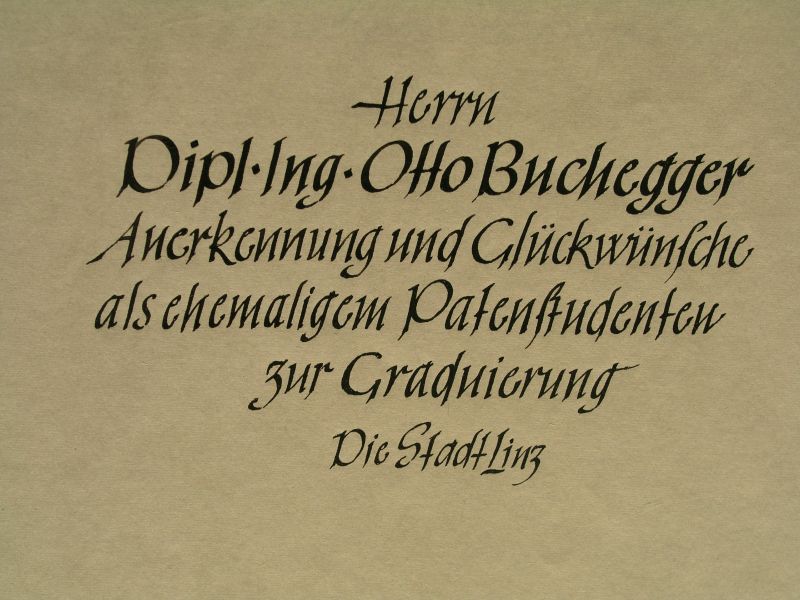 Herrn
Dipl·Ing·Otto Buchegger
Anerkennung und Glückwünſche
als ehemaligem Patenſtudenten
zur Graduierung
Die Stadt Linz